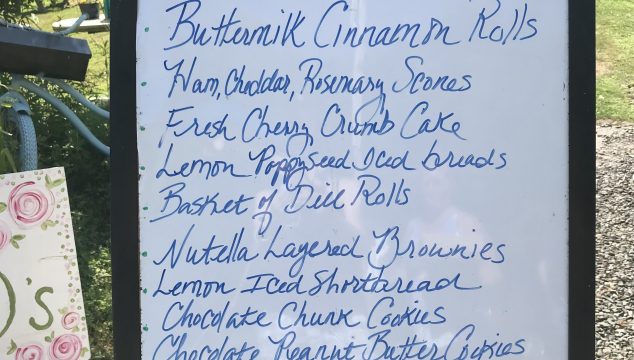 Buttermilk Cinnamon Rolls
Ham, Cheddar, Rosemary Scones
Fresh Cherry Crumb Cake
Lemon Poppyseed Iced breads
Basket of Dill Rolls
Nutella Layered Brownies
Lemon Iced Shortbread
Chocolate Chunk Cookies
Chocolate Peanut Butter Cookies
's